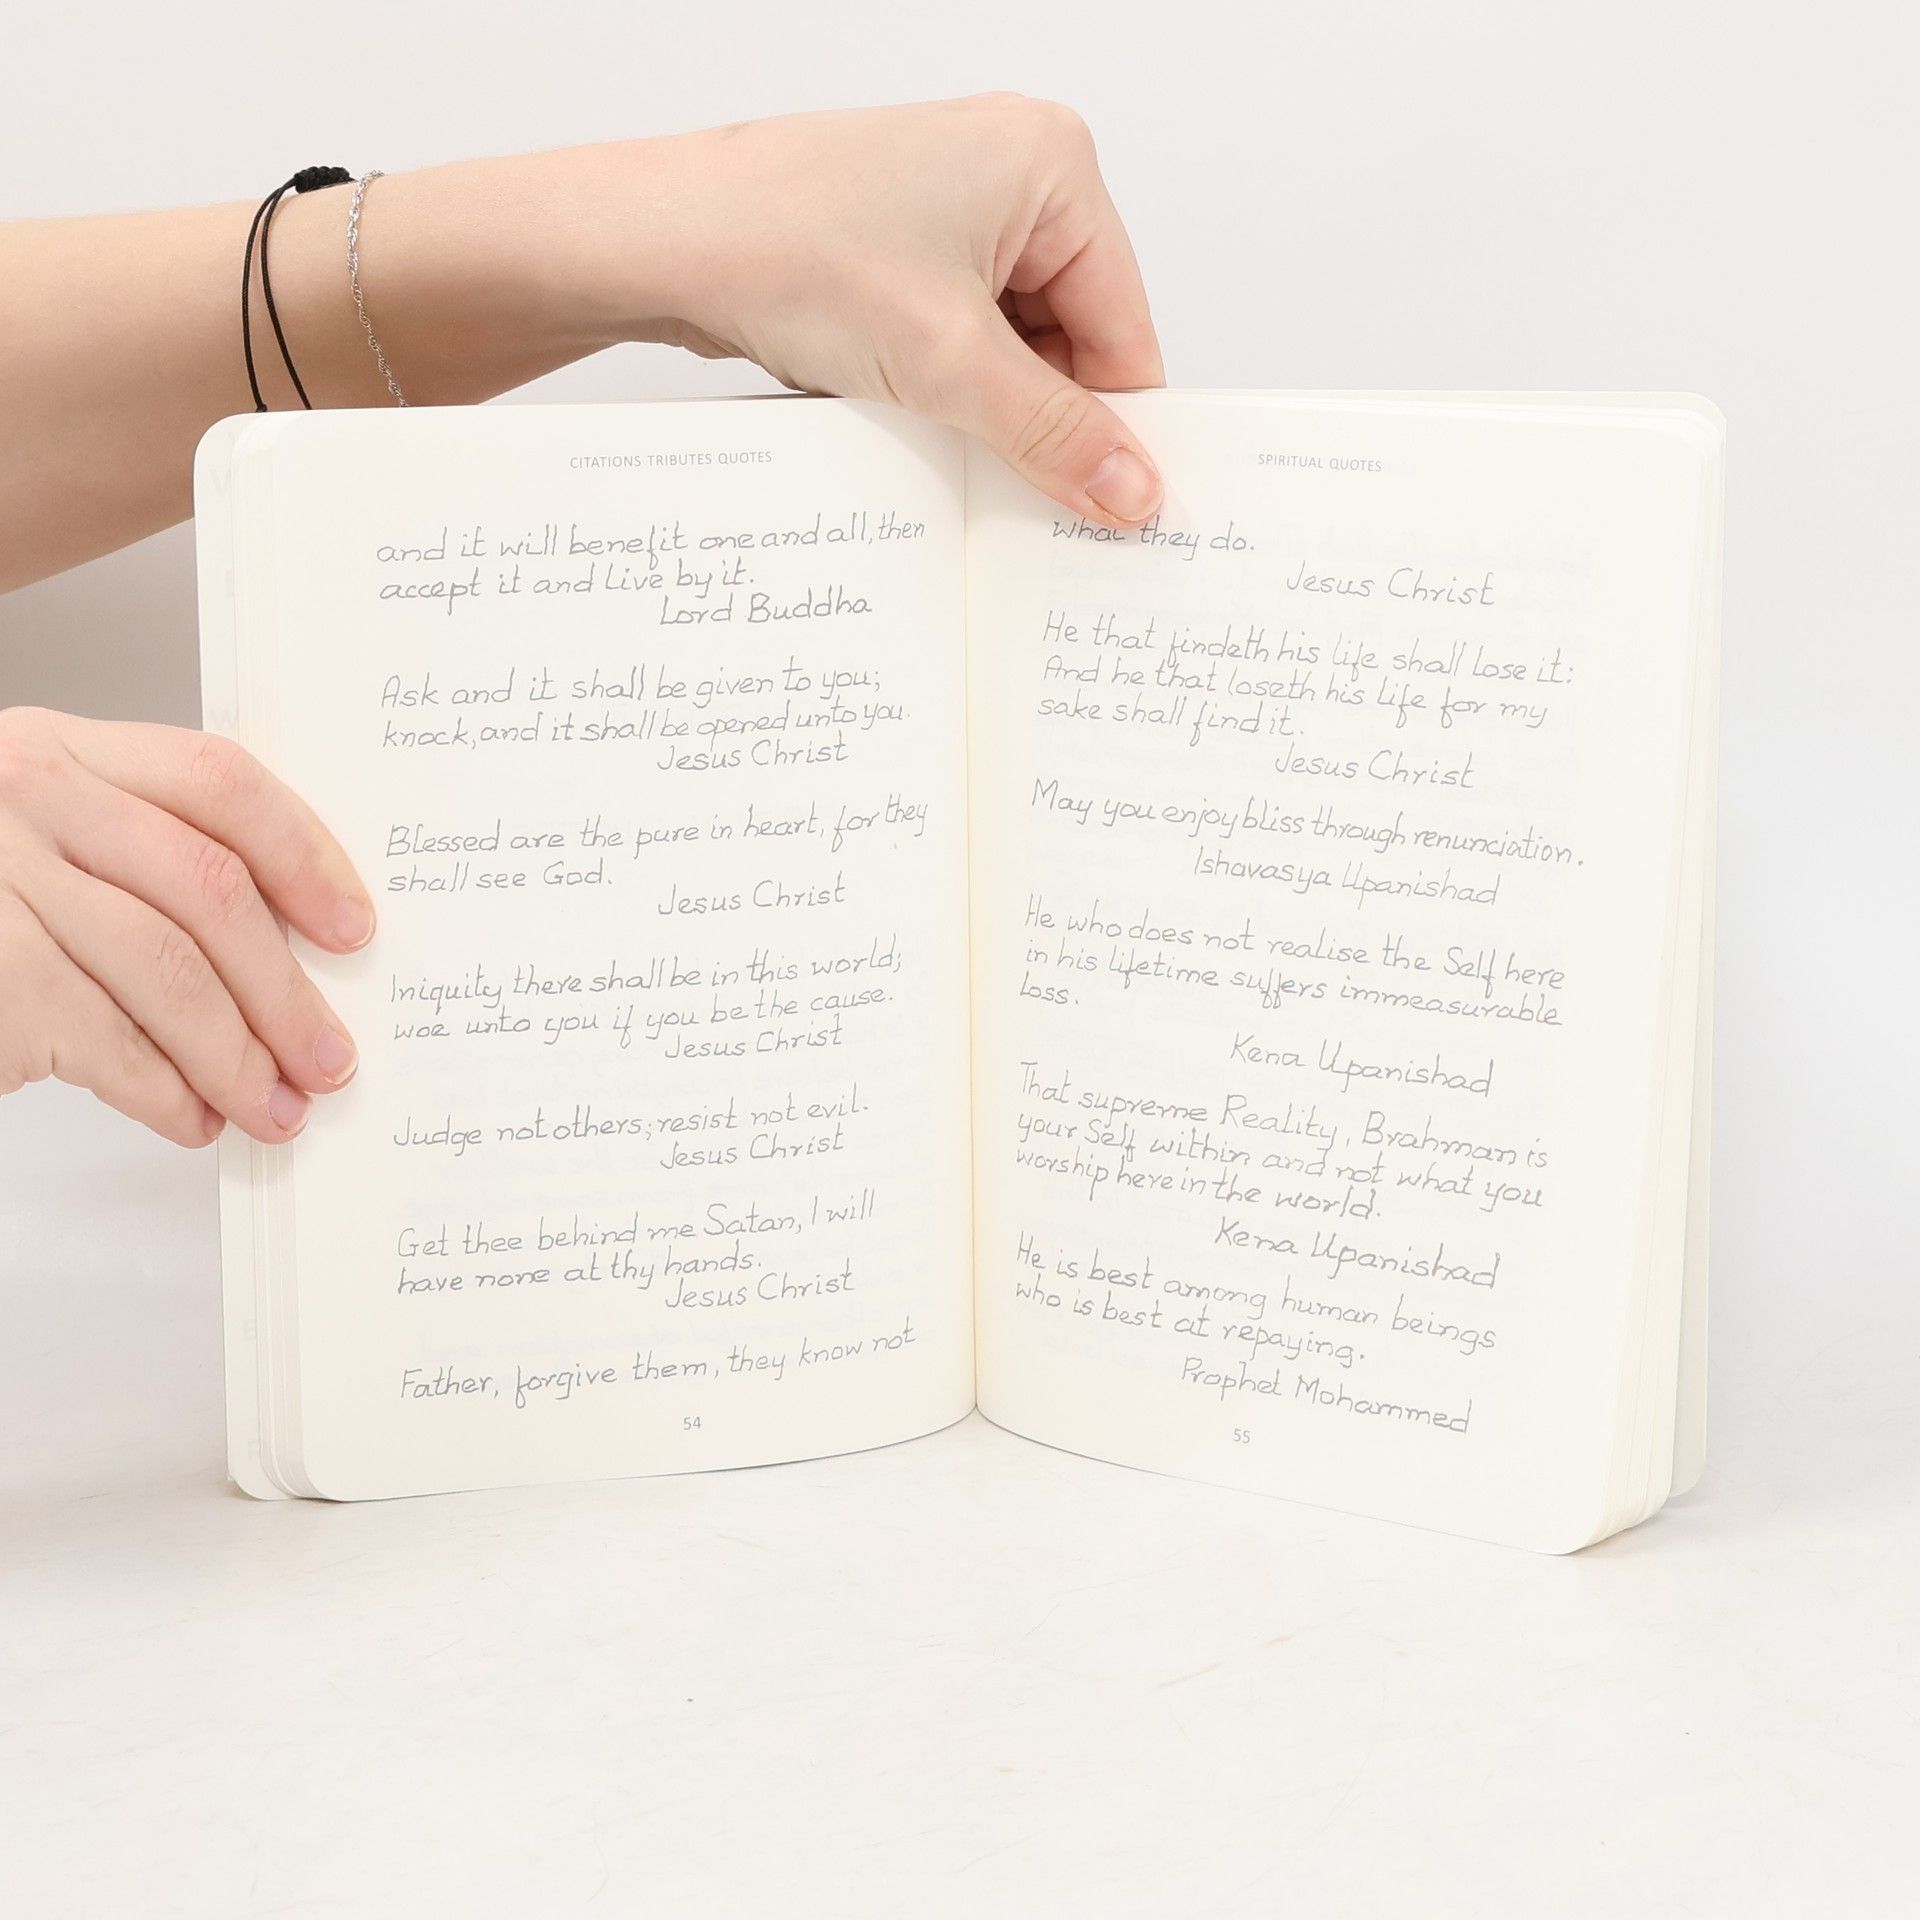 CITATIONS TRIBUTES QUOTES
and it will benefit one and all, then
accept it and live by it.
Lord Buddha
Ask and it shall be given to you;
knock, and it shall be opened unto you.
Jesus Christ
Blessed are the pure in heart, for they
shall see God.
Jesus Christ
Iniquity there shall be in this world;
woe unto you if you be the cause.
Jesus Christ
Judge not others; resist not evil.
Jesus Christ
Get thee behind me Satan, I will
have none at thy hands.
Jesus Christ
Father, forgive them, they know not
54
SPIRITUAL QUOTES
what they do.
Jesus Christ
He that findeth his life shall lose it:
And he that loseth his life for my
sake shall find it.
Jesus Christ
May you enjoy bliss through renunciation.
Ishavasya Upanishad
He who does not realise the Self here
in his lifetime suffers immeasurable
loss.
Kena Upanishad
That supreme Reality, Brahman is
your Self within and not what you
worship here in the world.
Kena Upanishad
He is best among human beings
who is best at repaying.
Prophet Mohammed
55